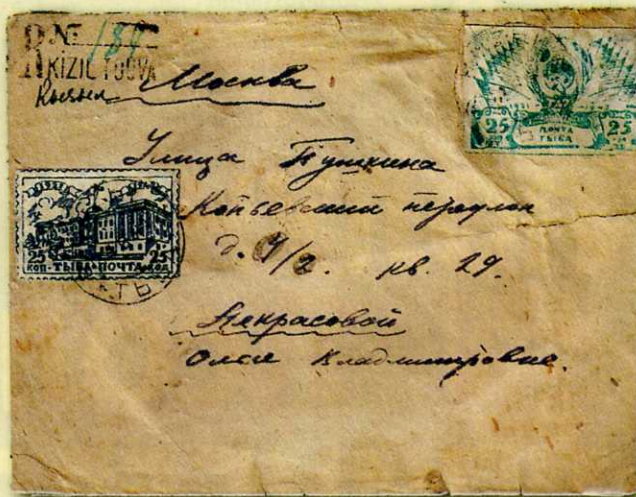 R № 184
KIZIL TOUVA
Кызыл Москва
Улица Пушкина
Копьевский переулок
д. 4/2. кв. 29.
Некрасовой
Ольге Владимировне.
25 ПОЧТА 25
ТЫВА
25 25
КОП ТЫВА ПОЧТА КОП
ТЫ